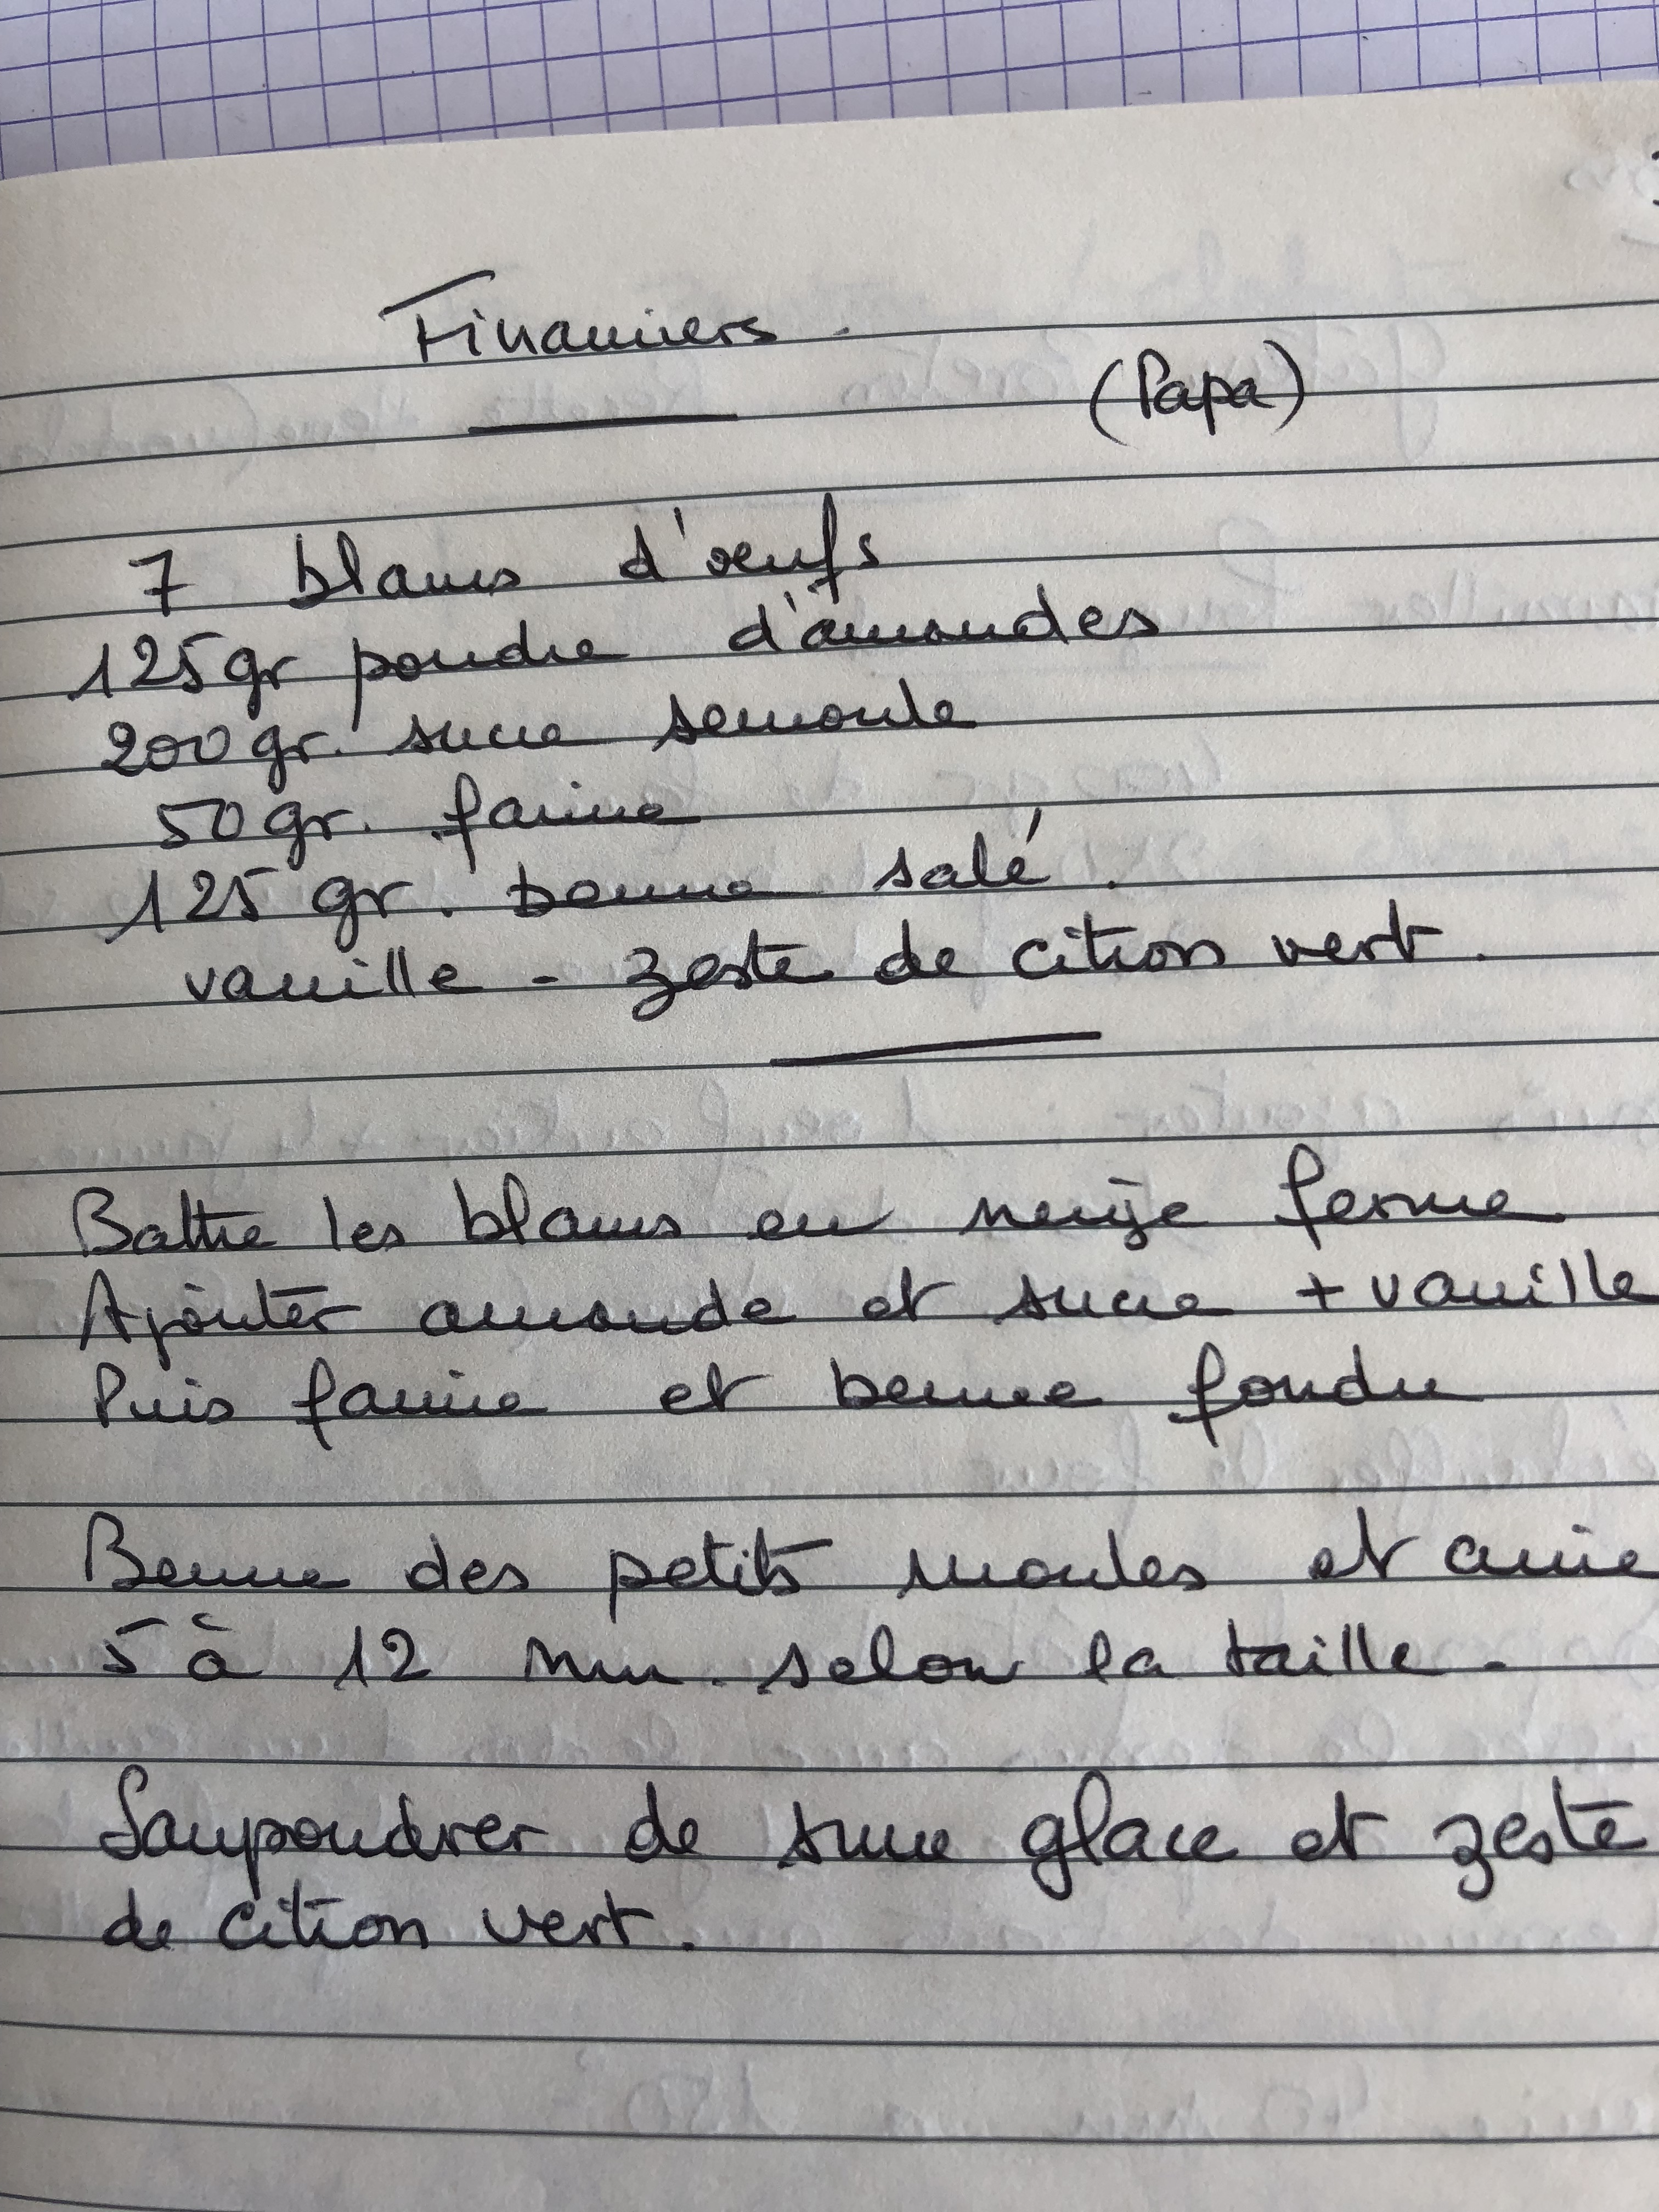 Financiers.
(Papa)
7 blancs d'œufs
125gr poudre d'amandes
200gr. sucre semoule
50gr. farine
125 gr. beurre salé.
vanille - zeste de citron vert.
Battre les blancs en neige ferme
Ajouter amande et sucre + vanille
Puis farine et beurre fondu
Beurre des petits moules et cuire
5 à 12 mn. selon la taille.
Saupoudrer de sucre glace et zeste
de citron vert.